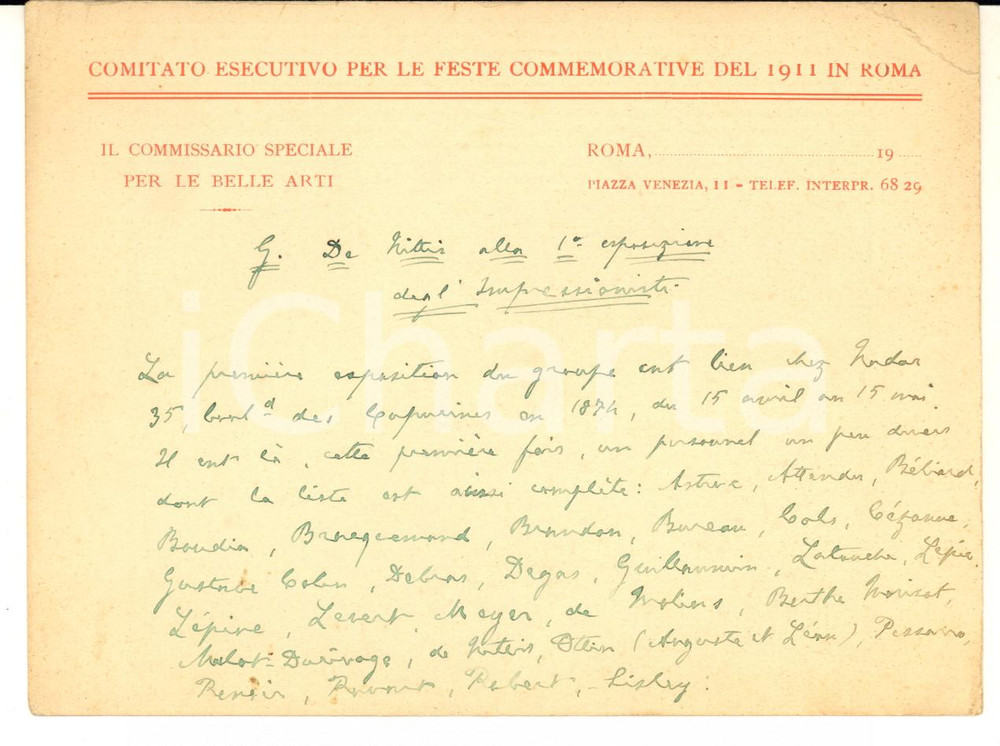 COMITATO ESECUTIVO PER LE FESTE COMMEMORATIVE DEL 1911 IN ROMA
IL COMMISSARIO SPECIALE
PER LE BELLE ARTI
ROMA, 19
PIAZZA VENEZIA, 11 - TELEF. INTERPR. 68 29
G. De Nittis alla 1a esposizione
degl' Impressionisti.
La première exposition du groupe eut lieu chez Nadar
35, boul.d des Capucines en 1874, du 15 avril au 15 mai.
Il eut là, cette première fois, un personnel un peu divers
dont la liste est aussi complète: Astruc, Attendu, Béliard,
Boudin, Bracquemond, Brandon, Bureau, Cals, Cézanne,
Gustave Colin, Debras, Degas, Guillaumin, Latouche, Lépic,
Lépine, Levert, Meyer, de Molins, Berthe Morisot,
Mulot-Durivage, de Nittis, Ottin (Auguste et Léon), Pissarro,
Renoir, Rouart, Robert, Sisley.
iCharta